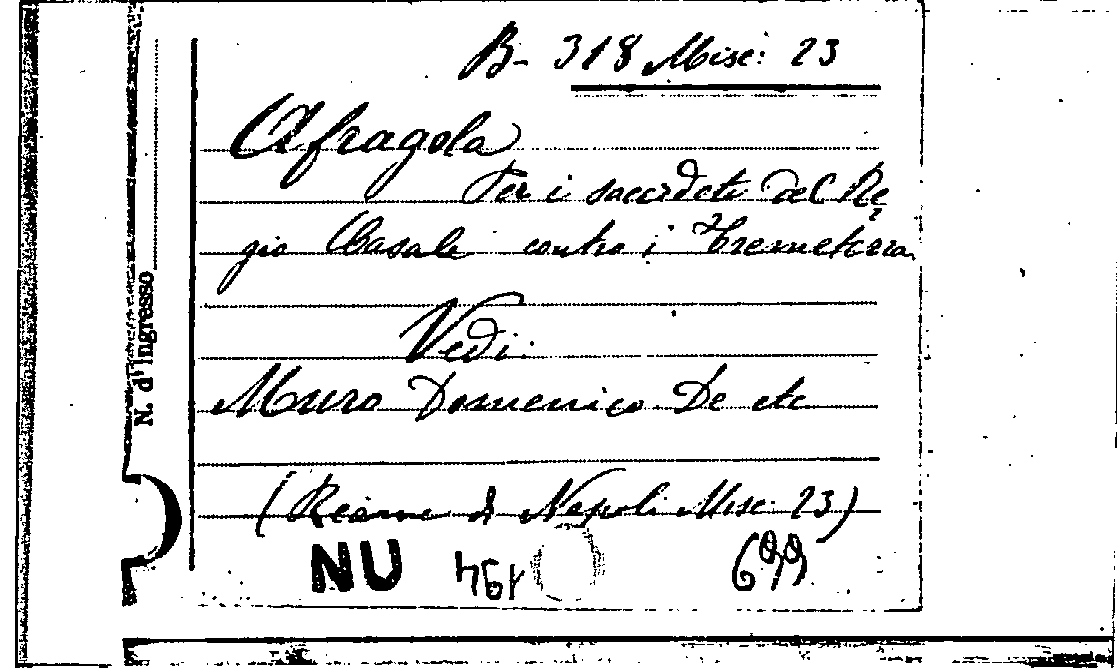 B- 318 Misc: 23
Afragola
Per i sacerdoti del Re
gio Casale contro i
Vedi:
Muro Domenico De etc
(Reame di Napoli Misc. 23)
NU
699
N. d'Ingresso